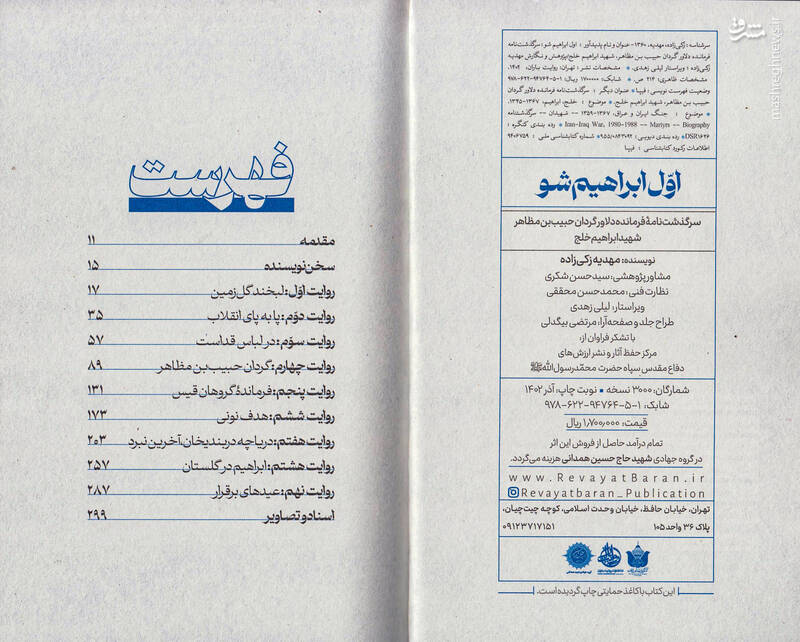 سرشناسه: زکی‌زاده، مهدیه، ۱۳۶۰- عنوان و نام پدیدآور : اول ابراهیم شو: سرگذشت‌نامه
فرمانده دلاور گردان حبیب بن مظاهر، شهید ابراهیم خلج/پژوهش و نگارش مهدیه
زکی‌زاده ؛ ویراستار لیلی زهدی. • مشخصات نشر : تهران: روایت باران، ۱۴۰۲.
مشخصات ظاهری: ۳۱۴ ص. • شابک: ۱۷۰۰۰۰۰ ریال: ۱-۵-۹۴۷۶۴-۶۲۲-۹۷۸
وضعیت فهرست نویسی : فیپا • عنوان دیگر : سرگذشت‌نامه فرمانده دلاور گردان
حبیب بن مظاهر، شهید ابراهیم خلج. • موضوع : خلج، ابراهیم، ۱۳۶۷-۱۳۴۵.
• موضوع : جنگ ایران و عراق، ۱۳۶۷-۱۳۵۹ -- شهیدان -- سرگذشتنامه
Iran-Iraq War, 1980-1988 -- Martyrs -- Biography • رده بندی کنگره :
DSR۱۶۲۶ • رده بندی دیویی : ۹۵۵/۰۸۴۳۰۹۲ • شماره کتابشناسی ملی : ۹۴۰۶۷۵۹
اطلاعات رکورد کتابشناسی : فیپا
اوّل ابراهیم شو
سرگذشت‌نامهٔ فرمانده دلاور گردان حبیب‌بن مظاهر
شهید ابراهیم خلج
نویسنده: مهدیه زکی‌زاده
مشاور پژوهشی: سیدحسن شکری
نظارت فنی: محمدحسن محققی
ویراستار: لیلی زهدی
طراح جلد و صفحه‌آرا: مرتضی بیگدلی
با تشکر فراوان از:
مرکز حفظ آثار و نشر ارزش‌های
دفاع مقدس سپاه حضرت محمّدرسول‌الله ﷺ
شمارگان: ۳۰۰۰ نسخه • نوبت چاپ: آذر ۱۴۰۲
شابک: ۱-۵-۹۴۷۶۴-۶۲۲-۹۷۸
قیمت: ۱,۷۰۰,۰۰۰ ریال
تمام درآمد حاصل از فروش این اثر
در گروه جهادی شهید حاج حسین همدانی هزینه می‌گردد.
www.RevayatBaran.ir
Revayatbaran_Publication
تهران، خیابان حافظ، خیابان وحدت اسلامی، کوچه چیت‌چیان،
پلاک ۳۶ واحد ۱۰۵ ۰۹۱۲۳۷۱۷۱۵۱
این کتاب با کاغذ حمایتی چاپ گردیده است.
فهرست
مقدمه ۱۱
سخن نویسنده ۱۵
روایت اوّل: لبخند گل زمین ۱۷
روایت دوّم: پا به پای انقلاب ۳۵
روایت سوّم: در لباس قداست ۵۷
روایت چهارم: گردان حبیب بن مظاهر ۸۹
روایت پنجم: فرماندهٔ گروهان قیس ۱۳۱
روایت ششم: هدف نونی ۱۷۳
روایت هفتم: دریاچه دربندیخان، آخرین نبرد ۲۰۳
روایت هشتم: ابراهیم در گلستان ۲۵۷
روایت نهم: عیدهای برقرار ۲۸۷
اسناد و تصاویر ۲۹۹
مشرق
mashreghnews.ir